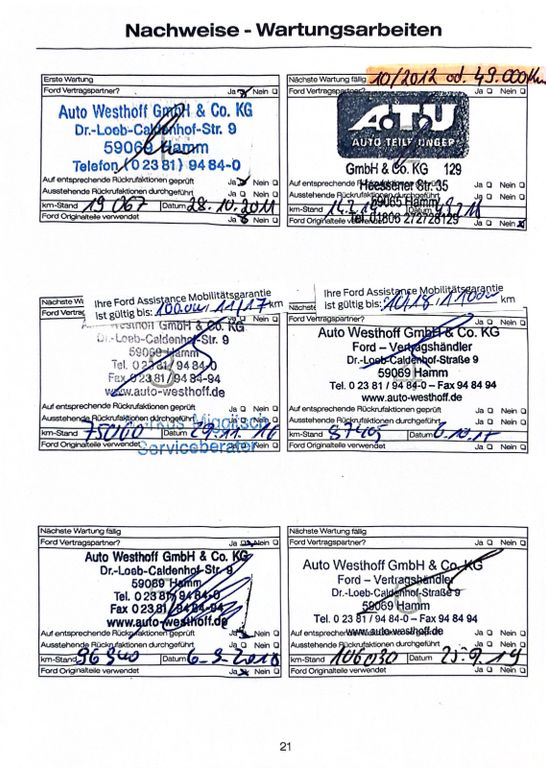 Nachweise - Wartungsarbeiten
Erste Wartung
Ford Vertragspartner? Ja Nein
Auto Westhoff GmbH & Co. KG
Dr.-Loeb-Caldenhof-Str. 9
59069 Hamm
Telefon (0 23 81) 94 84-0
Auf entsprechende Rückrufaktionen geprüft Ja Nein
Ausstehende Rückrufaktionen durchgeführt Ja Nein
km-Stand 19 067 Datum 28.10.2011
Ford Originalteile verwendet Ja Nein
Nächste Wartung fällig 10/2012 od. 49.000
Ford Vertragspartner? Ja Nein
A.T.U
AUTO TEILE UNGER
GmbH & Co. KG 129
Auf entsprechende Rückrufaktionen geprüft Ja Nein
Heessener Str. 35
Ausstehende Rückrufaktionen durchgeführt Ja Nein
59065 Hamm
km-Stand Datum
Tel. 01806 272728129
Ford Originalteile verwendet Ja Nein
Nächste
Ihre Ford Assistance Mobilitätsgarantie
ist gültig bis: 11/17 km
Ford Nein
Auto Westhoff GmbH & Co. KG
Dr.-Loeb-Caldenhof-Str. 9
59069 Hamm
Tel. 0 23 81 / 94 84-0
Fax 0 23 81 / 94 84-94
www.auto-westhoff.de
Auf entsprechende Rückrufaktionen geprüft Ja Nein
Ausstehende Rückrufaktionen durchgeführt Ja Nein
km-Stand 75000 Datum 29.11.16
Serviceberater
Ford Originalteile verwendet Ja Nein
Ihre Ford Assistance Mobilitätsgarantie
ist gültig bis: 10/18, km
Ford Nein
Auto Westhoff GmbH & Co. KG
Ford – Vertragshändler
Dr.-Loeb-Caldenhof-Straße 9
59069 Hamm
Tel. 0 23 81 / 94 84-0 – Fax 94 84 94
www.auto-westhoff.de
Auf entsprechende Rückrufaktionen geprüft Ja Nein
Ausstehende Rückrufaktionen durchgeführt Ja Nein
km-Stand 87405 Datum 6.10.17
Ford Originalteile verwendet Ja Nein
Nächste Wartung fällig
Ford Vertragspartner? Ja Nein
Auto Westhoff GmbH & Co. KG
Dr.-Loeb-Caldenhof-Str. 9
59069 Hamm
Tel. 0 23 81 / 94 84-0
Fax 0 23 81 / 94 84-94
www.auto-westhoff.de
Auf entsprechende Rückrufaktionen geprüft Ja Nein
Ausstehende Rückrufaktionen durchgeführt Ja Nein
km-Stand 96340 Datum 6-9-2018
Ford Originalteile verwendet Ja Nein
Nächste Wartung fällig
Ford Vertragspartner? Ja Nein
Auto Westhoff GmbH & Co. KG
Ford – Vertragshändler
Dr.-Loeb-Caldenhof-Straße 9
59069 Hamm
Tel. 0 23 81 / 94 84-0 – Fax 94 84 94
www.auto-westhoff.de
Auf entsprechende geprüft Ja Nein
Ausstehende Rückrufaktionen durchgeführt Ja Nein
km-Stand 106030 Datum 25.9.19
Ford Originalteile verwendet Ja Nein
21